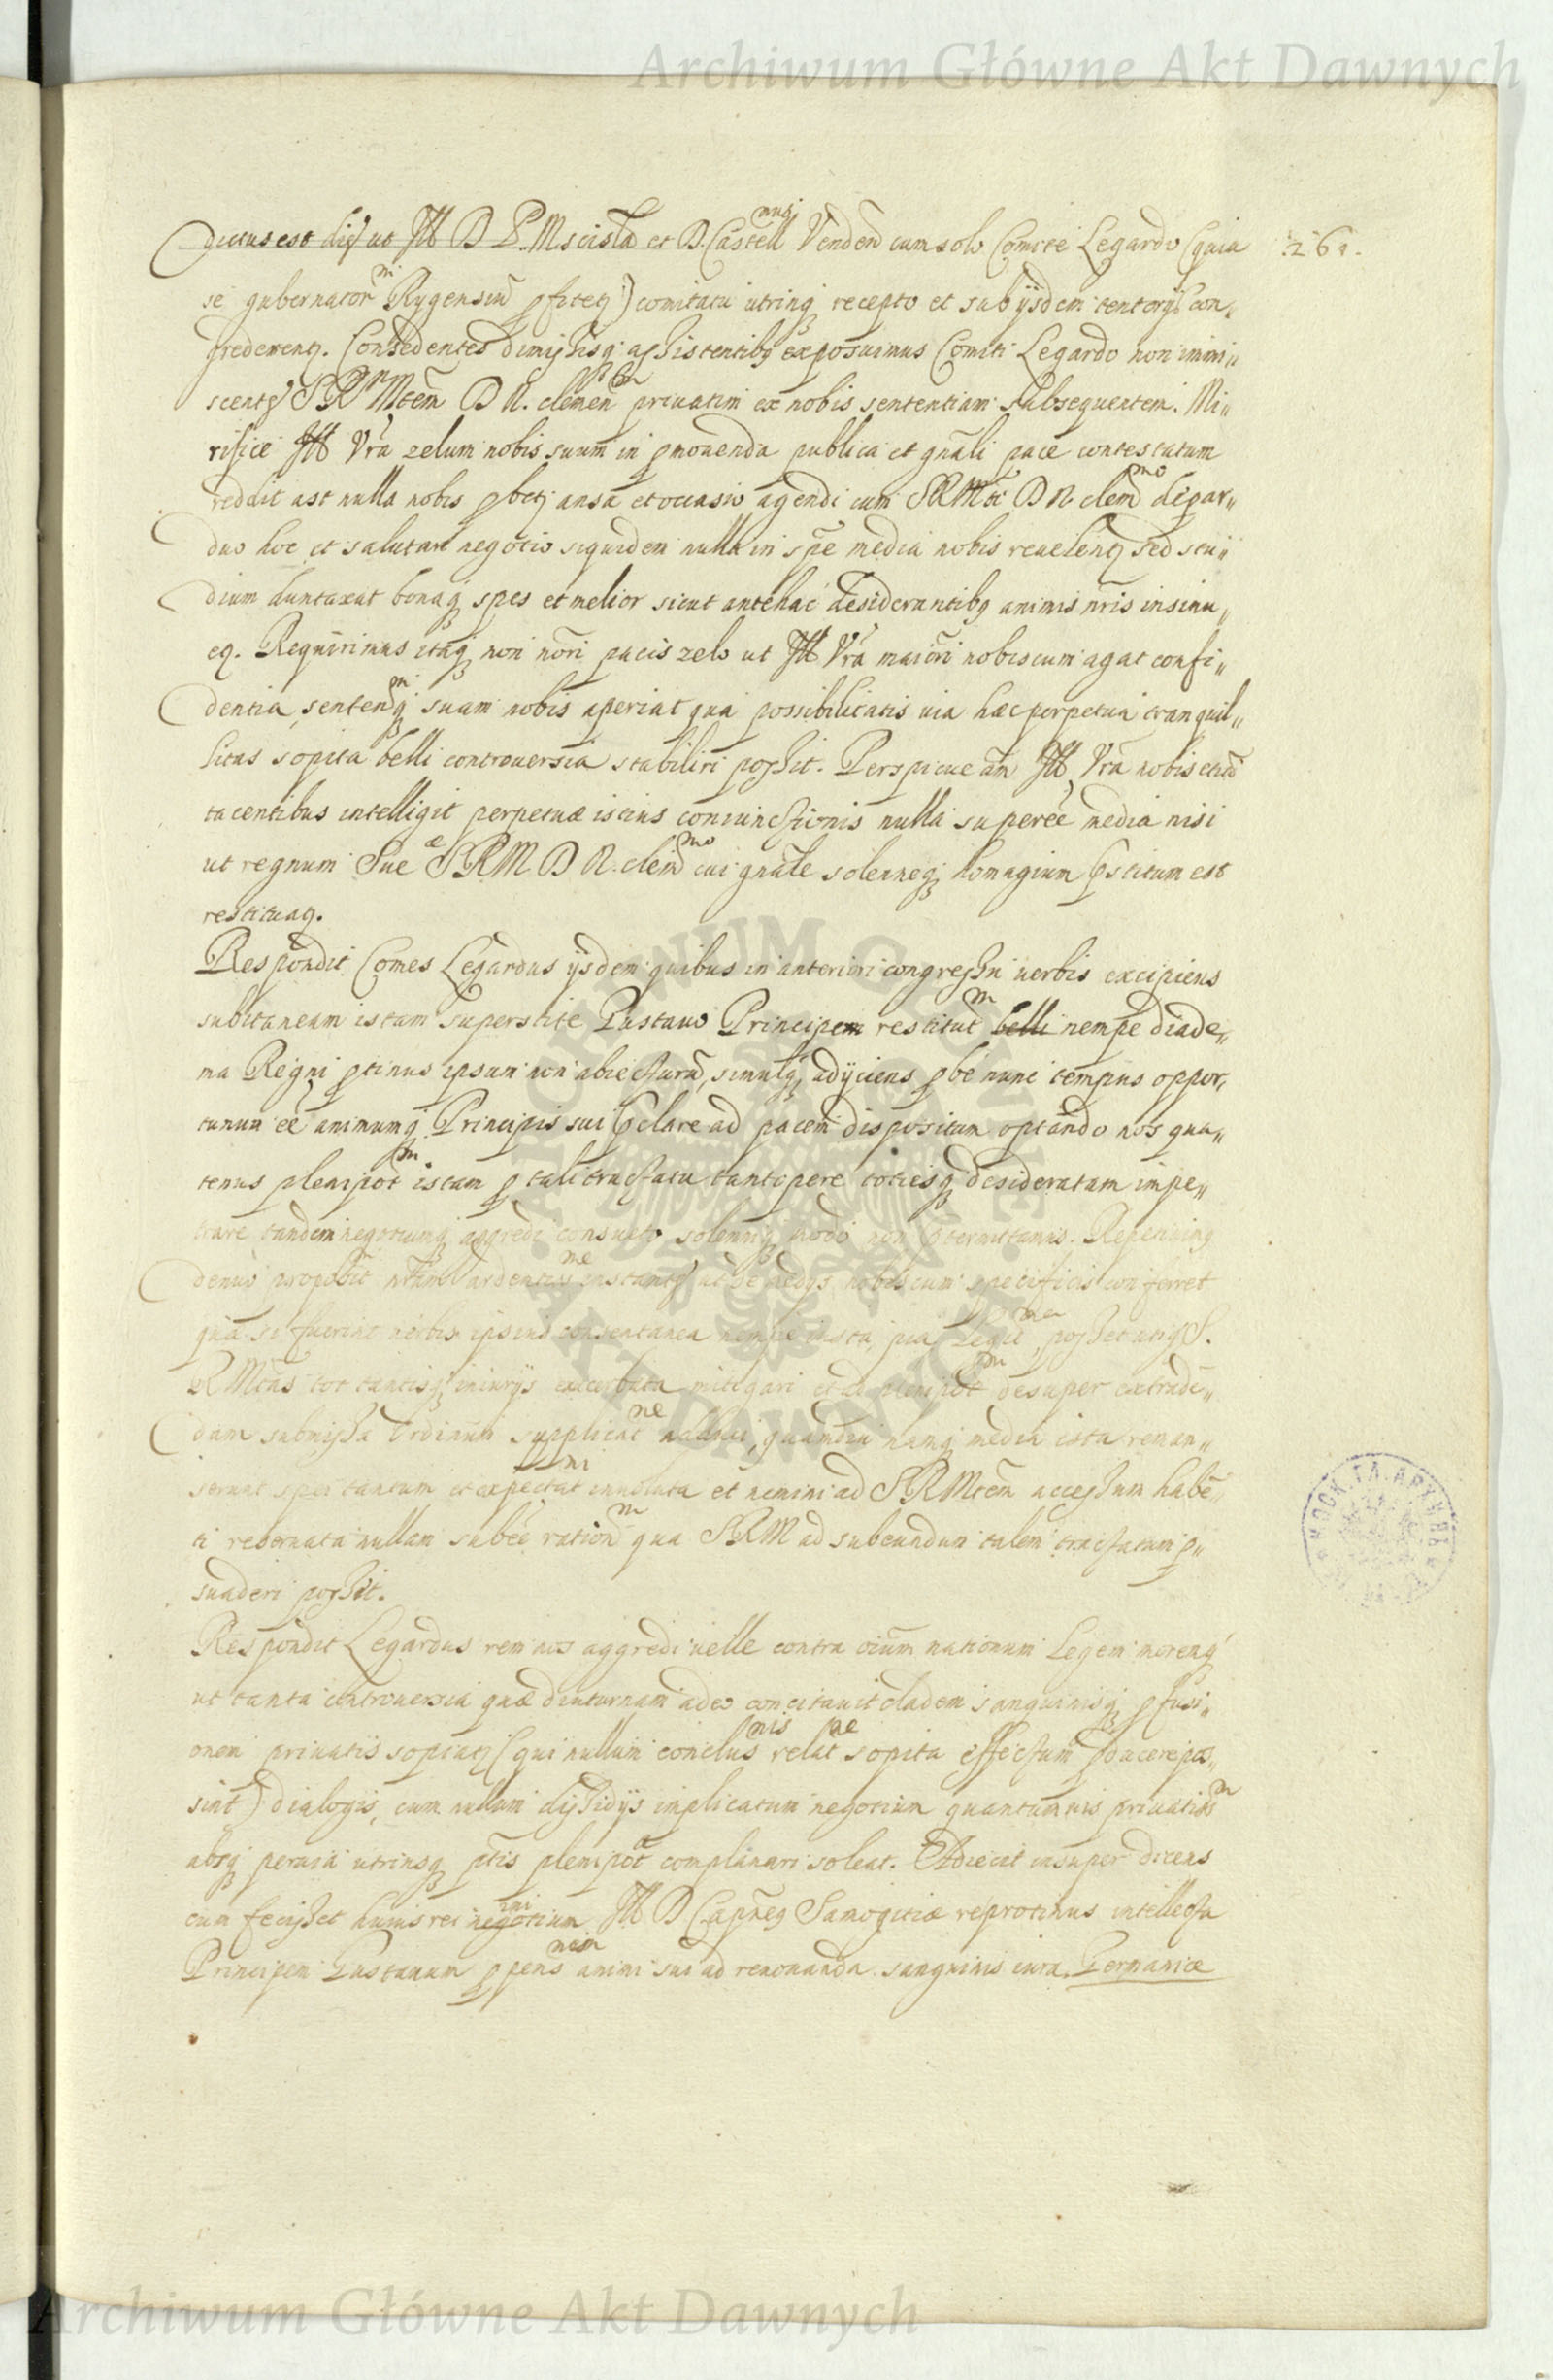 Archiwum Główne Akt Dawnych
261.
dictus est dies ut Ill D P. Mscisla et D. Castell nus Venden cum solo Comite Legardo (quia
se gubernatore m Rygensiu pfitetq) comitatu utrinq recepto et sub ijsdem tentorijs con„
grederentq. Considentes dimissisq assistentibq exposuimus Comiti Legardo non immi„
scentes SRMtem D N. clemen m privatim ex nobis sententiam subsequentem. Mi„
rifice Ill Vra zelum nobis suum in pmouenda publica et gnali pace contestatum
reddit ast nulla nobis pbetq ansa et occasio agendi cum SRMte D N clem mo de par„
duo hoc et salutari negotio siquidem nulla in spe media nobis reuelentq sed stu„
dium duntaxat bonaq spes et melior sicut antehac desiderantibq animis nris insinu„
etq. Requirimus itaq non nori pacis zelo ut Ill Vra maiori nobiscum agat confi„
dentia, sentenq m suam nobis aperiat qua possibilitatis uia haec perpetua tranquil„
litas sopita belli controuersia stabiliri possit. Perspicue am Ill Vra nobis etia
tacentibus intelligit perpetuæ istius coniunctionis nulla superee media nisi
ut regnum Sue æ SRM D N. clem mo cui gnale solenneq homagium pstitum est
restituatq.
Respondit Comes Legardus ijsdem quibus in anteriori congressu uerbis excipiens
subitaneam istam superstite Gustauo Principem restitut m belli nempe diade„
ma Regni ptinus ipsum non abiecturu, simulq adijciens pbe nunc tempus oppor„
tunum ee animumq Principis sui pclare ad pacem dispositum optando nos qua„
tenus plenipot m istam p tali tractatu tantopere totiesq desideratam impe„
trare tandem negotiumq aggredi consueto solenniq modo non ptermittamus. Repetiuimq
denuo proposit nrum ardentius instantes ut se de ijs nobiscum specificis conferret
quæ si fuerint uerbis ipsius consentanea nempe iusta, pia Legit ma, posset utiq S.
RMtas tot tantisq iniurijs exacerbata mitigari et ad plenipot m desuper extrade„
dam submissa Ordinum supplicat ne adduci, quamdiu namq media ista reman„
serunt spei tantum et expectat ni inuoluta et nemini ad SRMtem accessum habe„
ti reseruata nullam subee ration m qua SRM ad subeundum talem tractatum p„
suaderi possit.
Respondit Legardus rem nos aggredi uelle contra oium nationum Legem moremq
ut tanta controuersia quæ diuturnam adeo concitauit cladem sanguinisq pfusi„
onem priuatis sopiatq (qui nullum conclus nis relat ne sopita effectum pducere pos„
sint) dialogis, cum nullum dissidijs implicatum negotium quantumuis priuatim
absq peruia utriusq ptis plenipot a complanari soleat. Adiecit insuper dicens
cum fecisset huius rei negotium ni Ill D Capneq Samogitiæ re protinus intellecta
Principem Gustauum ppens nem animi sui ad renouanda sanguinis iura, Germaniæ
Archiwum Główne Akt Dawnych